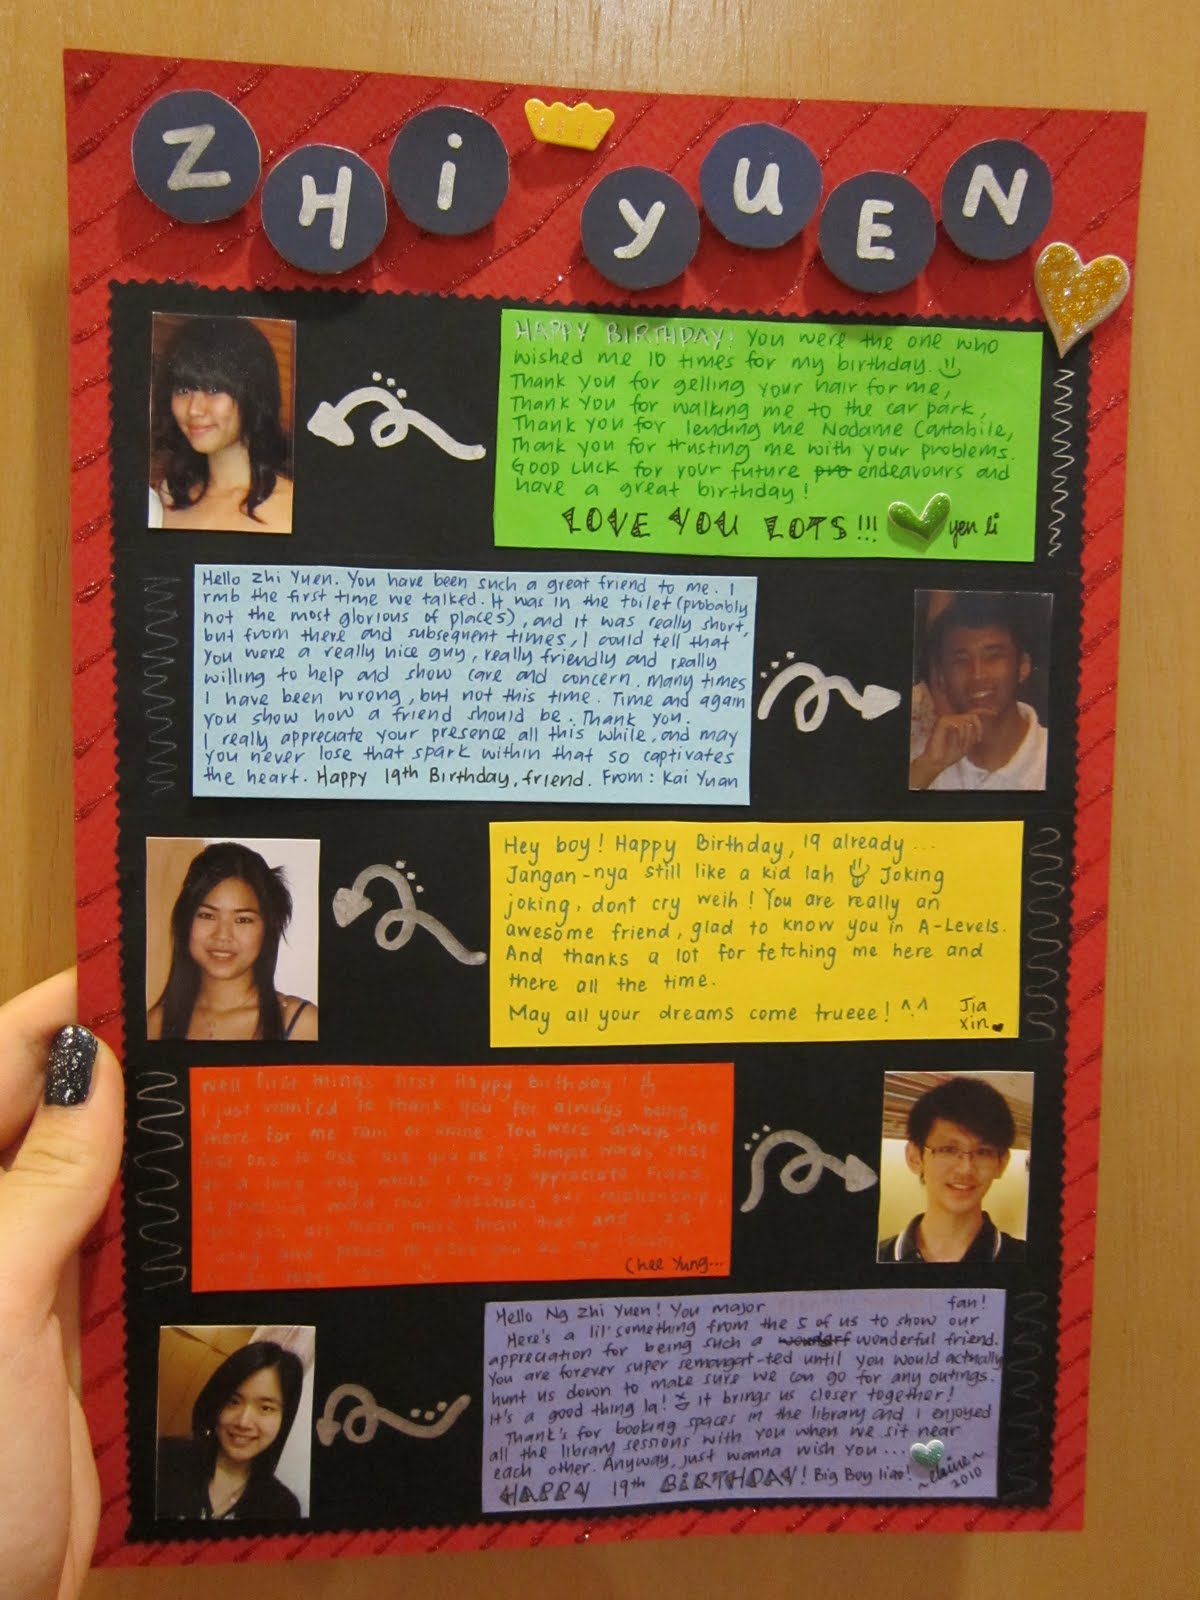 ZHI YUEN
HAPPY BIRTHDAY! You were the one who
wished me 10 times for my birthday.
Thank you for gelling your hair for me,
Thank you for walking me to the car park,
Thank you for lending me Nodame Cantabile,
Thank you for trusting me with your problems.
GOOD LUCK for your future pro endeavours and
have a great birthday!
LOVE YOU LOTS!!! yen li
Hello Zhi Yuen. You have been such a great friend to me. I
rmb the first time we talked. It was in the toilet (probably
not the most glorious of places), and it was really short,
but from there and subsequent times, I could tell that
you were a really nice guy, really friendly and really
willing to help and show care and concern. Many times
I have been wrong, but not this time. Time and again
you show how a friend should be. Thank you.
I really appreciate your presence all this while, and may
you never lose that spark within that so captivates
the heart. Happy 19th Birthday, friend. From: Kai Yuan
Hey boy! Happy Birthday, 19 already...
Jangan-nya still like a kid lah Joking
joking, dont cry weih! You are really an
awesome friend, glad to know you in A-Levels.
And thanks a lot for fetching me here and
there all the time.
May all your dreams come trueee! ^.^ Jia
Xin
Well first things first Happy Birthday!
I just wanted to thank you for always being
there for me rain or shine. You were always the
one to ask are you ok? Simple words that
a long way which I truly appreciate
a that describes our relationship,
you are much more than that and
and to have you as my
Chee Yung...
Hello Ng Zhi Yuen! You major fan!
Here's a lil' something from the 5 of us to show our
appreciation for being such a wonderful friend.
You are forever super semangat-ted until you would actually
hunt us down to make sure we can go for any outings.
It's a good thing la! it brings us closer together!
Thank's for booking spaces in the library and I enjoyed
all the library sessions with you when we sit near
each other. Anyway, just wanna wish you...
HAPPY 19th BIRTHDAY! Big Boy liao! ~Claire~
2010